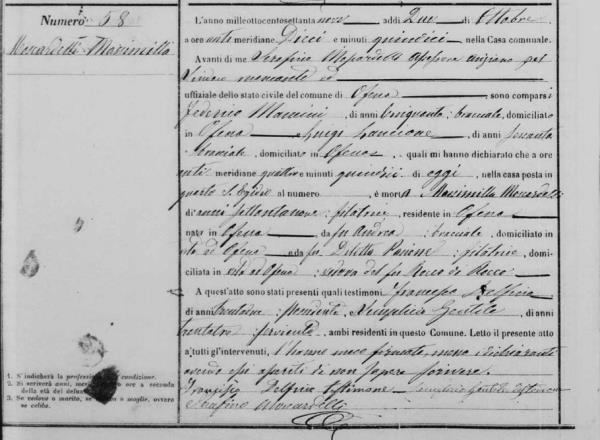 Numero 58
Moscardelli Maximilla
L'anno milleottocentosettantanove, addì Due di Ottobre
a ore anti meridiane Dieci e minuti quindici, nella Casa comunale.
Avanti di me Serafino Moscardelli Assessore anziano pel
Sindaco mancante ed
uffiziale dello stato civile del comune di Ofena, sono comparsi
Federico Mancini, di anni cinquanta: bracciale, domiciliato
in Ofena e Luigi, di anni sessanta
bracciale, domiciliato in Ofena, quali mi hanno dichiarato che a ore
anti meridiane quattro e minuti quindici di oggi, nella casa posta in
quarto S. Egidio al numero, è morta Maximilla Moscardelli
di anni settantanove: filatrice, residente in Ofena
nata in Ofena, da fu Andrea: bracciale, domi-
ciliato in vita ad Ofena e da fu Diletta: filatrice, domi-
ciliata in vita ad Ofena: vedova del fu Rocco de Rocco
A quest'atto sono stati presenti quali testimoni Francesco
di anni trentadue: possidente, e Gentile, di anni
trentatre: serviente, ambi residenti in questo Comune. Letto il presente atto
a tutti gl'intervenuti, l'hanno meco firmato, meno i dichiaranti
avendo essi asserito di non sapere scrivere.
testimone Gentile testimone
Serafino Moscardelli
1. S'indicherà la professione o la condizione.
2. Si scriverà anni, mesi, o ore a seconda
della età del defunto.
3. Se vedova o marito, se o moglie, ovvero
se celibe.